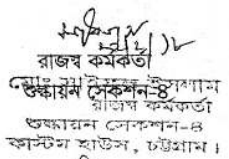 রাজস্ব কর্মকর্তা
শুল্কায়ন সেকশন-৪
ইসলাম
রাজস্ব কর্মকর্তা
শুল্কায়ন সেকশন-৪
কাস্টম হাউস, চট্টগ্রাম।